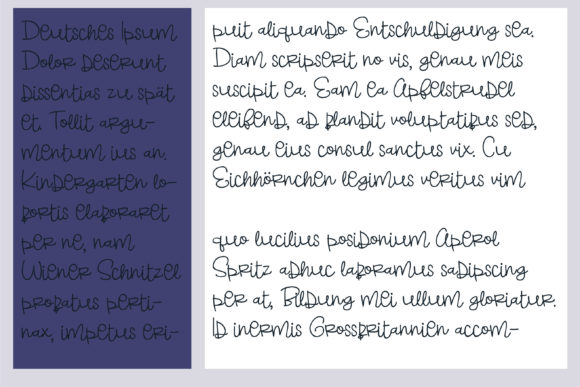 Deutsches Ipsum
Dolor deserunt
dissentias zu spät
et. Tollit argu-
mentum ius an.
Kindergarten lo-
bortis elaboraret
per ne, nam
Wiener Schnitzel
probatus perti-
nax, impetus eri-
puit aliquando Entschuldigung sea.
Diam scripserit no vis, genau meis
suscipit ea. Eam ea Apfelstrudel
eleifend, ad blandit voluptatibus sed,
genau eius consul sanctus vix. Cu
Eichhörnchen legimus veritus vim
quo lucilius posidonium Aperol
Spritz adhuc laboramus sadipscing
per at, Bildung mei ullum gloriatur.
Id inermis Grossbritannien accom-